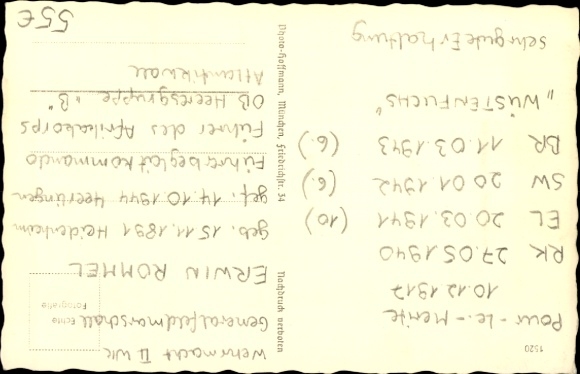 1520
Pour-Le-Merite
10.12.1917
RK 27.05.1940
EL 20.03.1941 (10)
SW 20.01.1942 (6.)
BR 11.03.1943 (6.)
„WÜSTENFUCHS"
Sehr gute Erhaltung
Nachdruck verboten
Photo-Hoffmann, München, Friedrichstr. 34
Wehrmacht II WK
Echte
Fotografie
Generalfeldmarschall
ERWIN ROMMEL
geb. 15.11.1891 Heidenheim
gef. 14.10.1944 Herrlingen
Führerbegleitkommando
Führer des Afrikakorps
OB Heeresgruppe „B"
Atlantikwall
55€